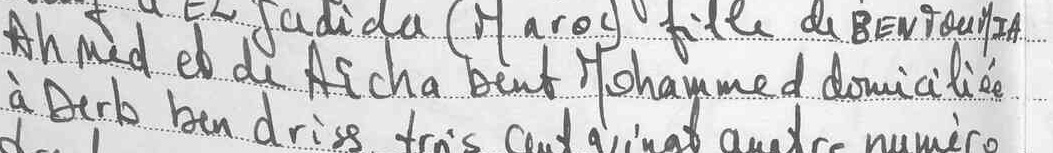 à EL Jadida (Maroc) fille de BENTOUMIA
Ahmed et de Aicha bent Mohammed domiciliée
à Derb ben driss trois cent vingt quatre numéro